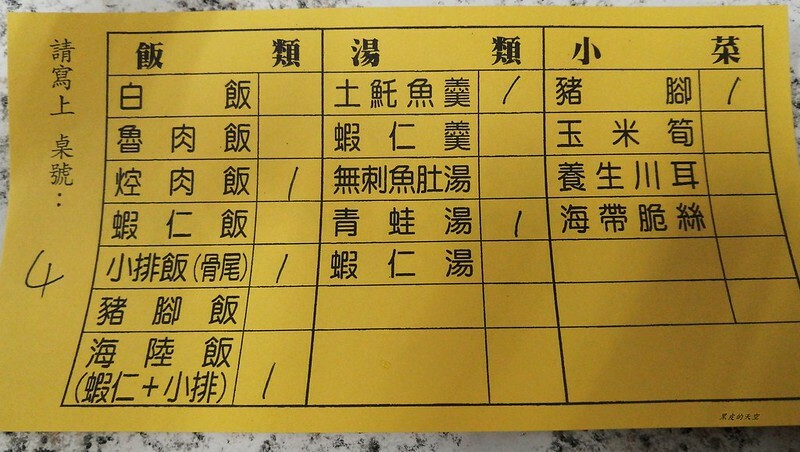 請寫上 桌號：
4
飯類 湯類 小菜
白飯 土魠魚羹 / 豬腳 /
魯肉飯 蝦仁羹 玉米筍
焢肉飯 / 無刺魚肚湯 養生川耳
蝦仁飯 青蛙湯 / 海帶脆絲
小排飯(骨尾) / 蝦仁湯
豬腳飯
海陸飯
(蝦仁+小排) /
黑皮的天空